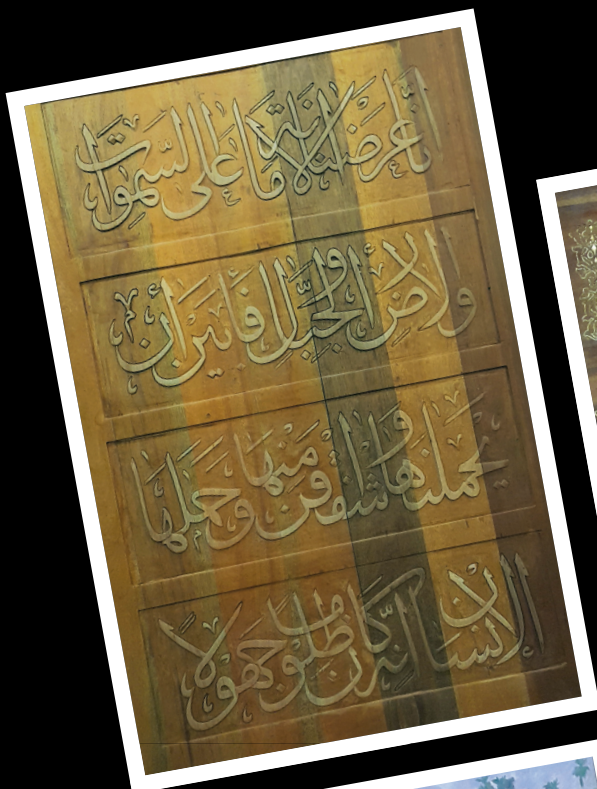 إنا عرضنا الأمانة على السموات
والأرض والجبال فأبين أن
يحملنها وأشفقن منها وحملها
الإنسان إنه كان ظلوما جهولا